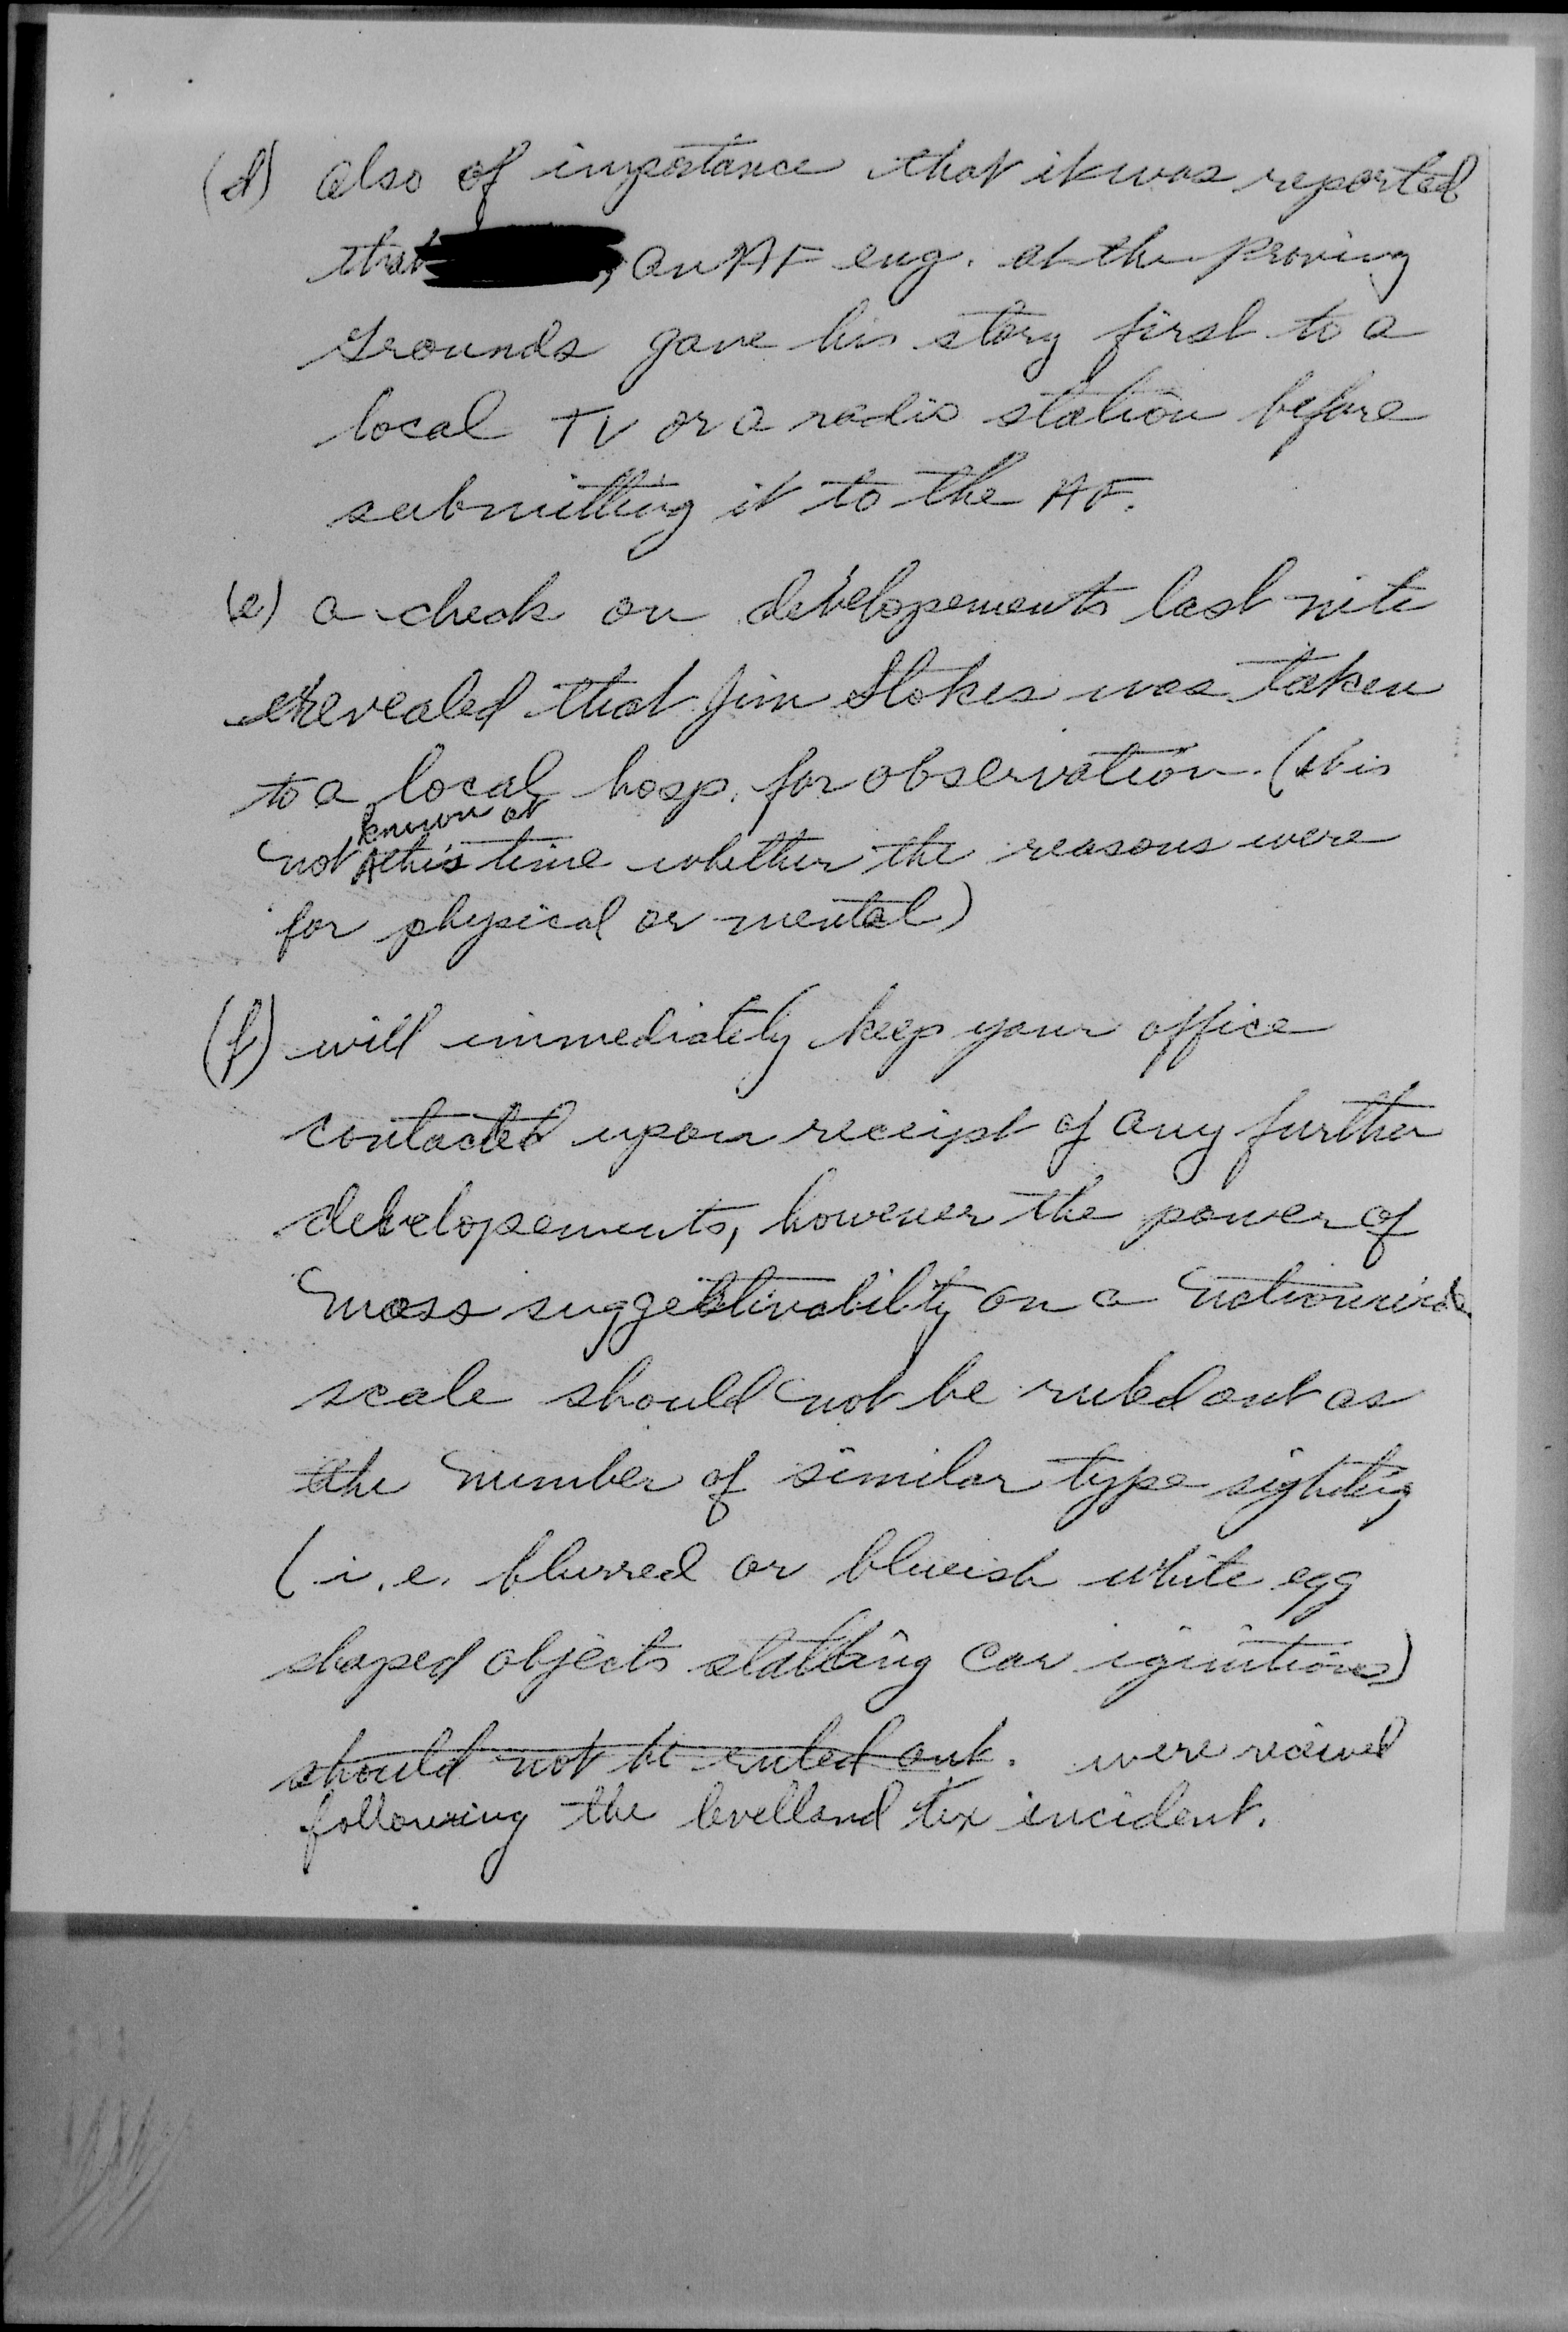 (d) also of importance that it was reported
that , an AF eng. at the proving
Grounds gave his story first to a
local TV or a radio station before
submitting it to the AF.
(e) a check on developements last nite
revealed that Jim Stokes was taken
to a local hosp. for observation. (it is
not known at this time whether the reasons were
for physical or mental)
(f) will immediately keep your office
contacted upon receipt of any further
developements, however the power of
mass suggestivability on a nationwide
scale should not be ruled out as
the number of similar type sighting
(i.e. blurred or blueish white egg
shaped objects stalling car ignitions)
should not be ruled out. were recieved
following the levelland tex incident.